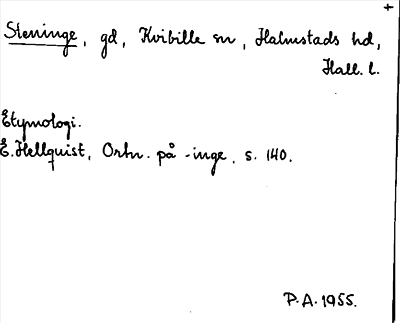 +
Steninge, gd, Kvibille sn, Halmstads hd,
Hall. l.
Etymologi.
E. Hellquist, Ortn. på -inge, s. 140.
P. A. 1955.